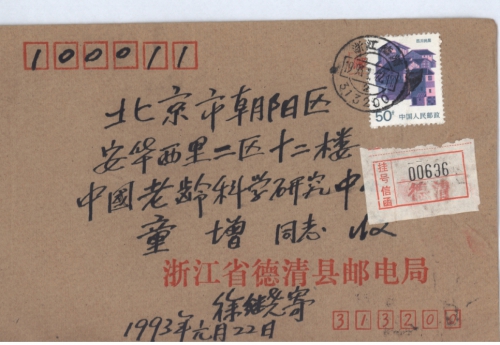 100011
50分 中国人民邮政
浙江
313200
北京市朝阳区
安华西里二区十二楼
中国老龄科学研究中
童增 同志 收
挂号信函
00636
德清
浙江省德清县邮电局
寄
1993年元月22日
31320